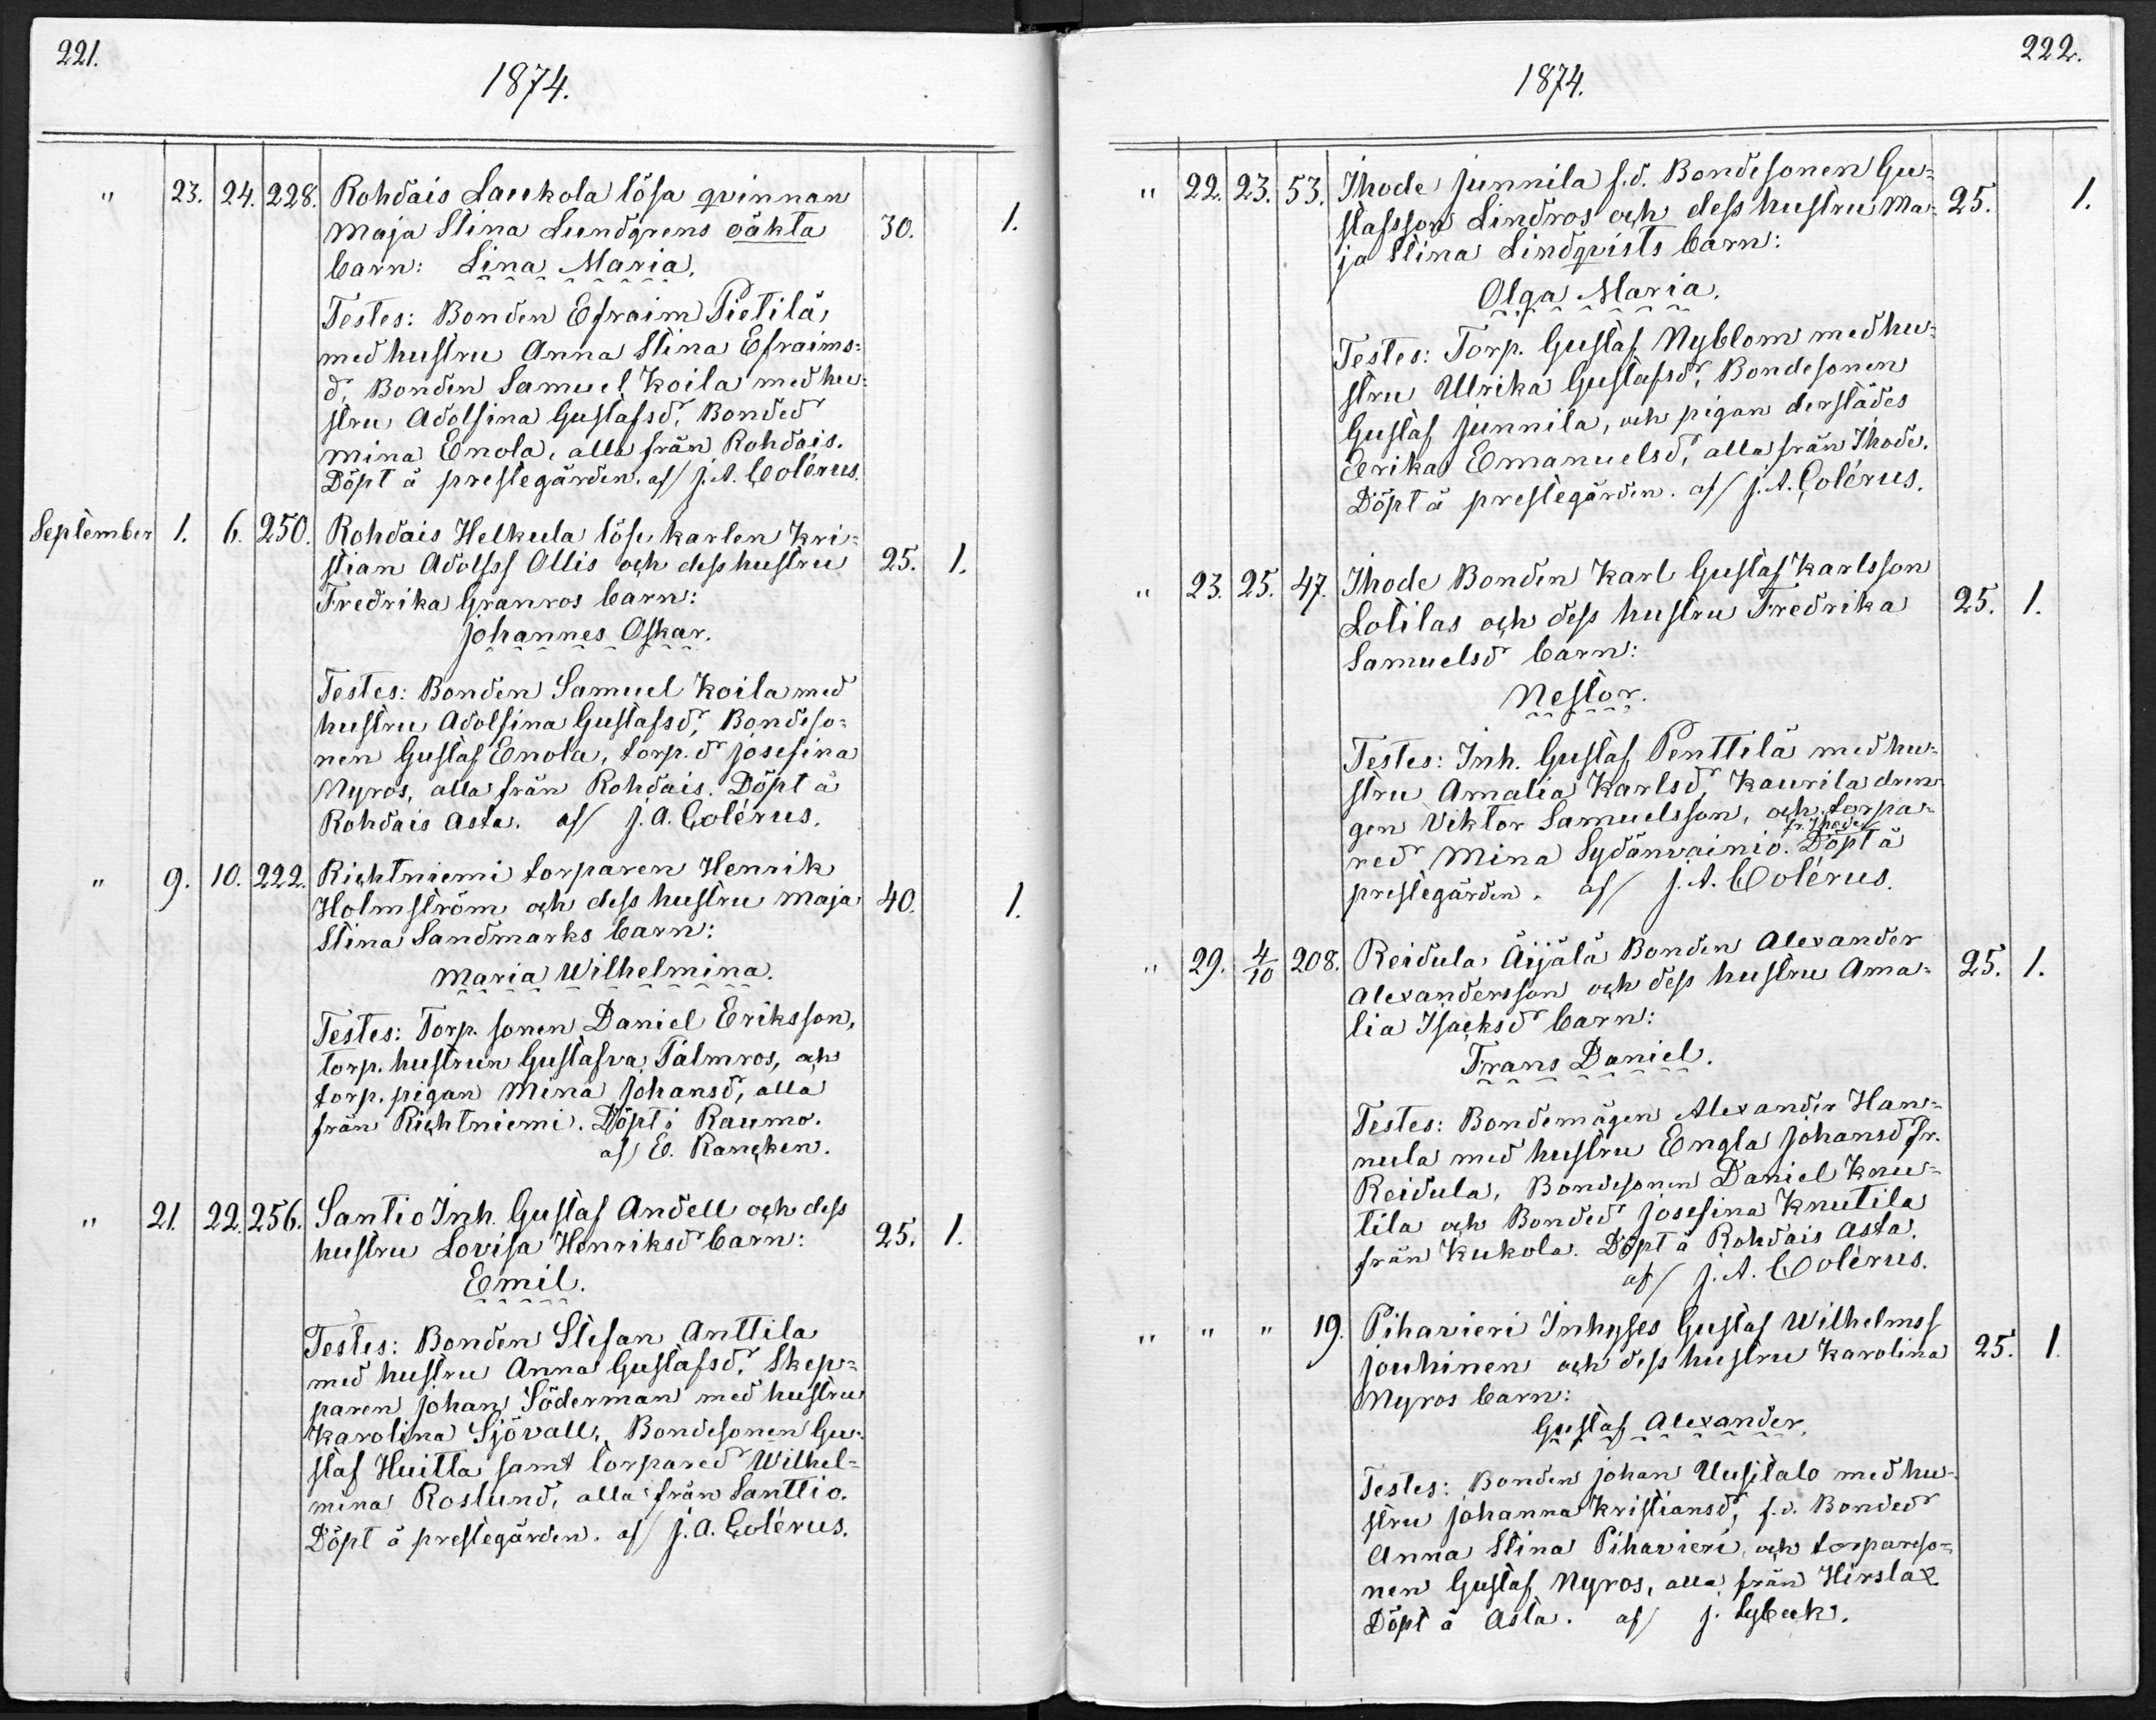 221.
1874.
" 23. 24. 228. Rohdais Laukola lösa qvinnan
Maja Stina Lundgrens oäkta 30. 1.
barn: Lina Maria.
Testes: Bonden Efraim Pietilä,
med hustru Anna Stina Efraims=
d, Bonden Samuel Koila med hu=
stru Adolfina Gustafsd, Bonded
Mina Enola, alla från Rohdais.
Döpt å prestegården. af/ J. A. Colérus.
September 1. 6. 250. Rohdais Helkula löse karlen Kri=
stian Adolfss Ollis och dess hustru 25. 1.
Fredrika Granros barn:
Johannes Oskar.
Testes: Bonden Samuel Koila med
hustru Adolfina Gustafsd, Bondeso=
nen Gustaf Enola, torp.d Josefina
Nyros, alla från Rohdais. Döpt å
Rohdais Asta. af/ J. A. Colérus.
" 9. 10. 222. Richtniemi torparen Henrik
Holmström och dess hustru Maja 40. 1.
Stina Sandmarks barn:
Maria Wilhelmina.
Testes: Torp. sonen Daniel Eriksson,
torp. hustrun Gustafva Palmros, och
torp. pigan Mina Johansd, alla
från Richtniemi. Döpt i Raumo.
af/ E. Rancken.
" 21. 22. 256. Santio Inh. Gustaf Andell och dess
hustru Lovisa Henriksd barn: 25. 1.
Emil.
Testes: Bonden Stefan Anttila
med hustru Anna Gustafsd, Skep=
paren Johan Söderman med hustru
Karolina Sjövall, Bondesonen Gu=
staf Huitta samt torpared Wilhel=
mina Roslund, alla från Santtio.
Döpt å prestegården. af/ J. A. Colérus.
222.
1874.
" 22. 23. 53. Ihode Junnila f.d. Bondesonen Gu=
stafsson Lindros och dess hustru Ma= 25. 1.
ja Stina Lindqvists barn:
Olga Maria.
Testes: Torp. Gustaf Nyblom med hu=
stru Ulrika Gustafsd, Bondesonen
Gustaf Junnila, och pigan derstädes
Erika Emanuelsd, alla från Ihode.
Döpt å prestegården. af/ J. A. Colérus.
" 23. 25. 47. Ihode Bonden Karl Gustaf Karlsson
Lotilas och dess hustru Fredrika 25. 1.
Samuelsd barn:
Nestor.
Testes: Inh. Gustaf Penttilä med hu=
stru Amalia Karlsd, Kaurila dren=
gen Viktor Samuelsson, och torpa=
fr. Ihode
red Mina Sydänvainio. Döpt å
prestegården. af/ J. A. Colérus.
" 29. 4/10 208. Reidula Äijälä Bonden Alexander
Alexandersson och dess hustru Ama= 25. 1.
lia Isacksd barn:
Frans Daniel.
Testes: Bondemågen Alexander Han=
nula med hustru Engla Johansd fr.
Reidula, Bondesonen Daniel Knu=
tila och Bonded Josefina Knutila
från Kukola. Döpt å Rohdais Asta.
af/ J. A. Colérus.
" " " 19. Pihavieri Inhyses Gustaf Wilhelmss
Jouhinen och dess hustru Karolina 25. 1.
Nyros barn:
Gustaf Alexander.
Testes: Bonden Johan Uusitalo med hu=
stru Johanna Kristiansd, f.d. Bonded
Anna Stina Pihavieri, och torpareso=
nen Gustaf Nyros, alla från Hirslax
Döpt å Asta. af/ J. Lybeck.